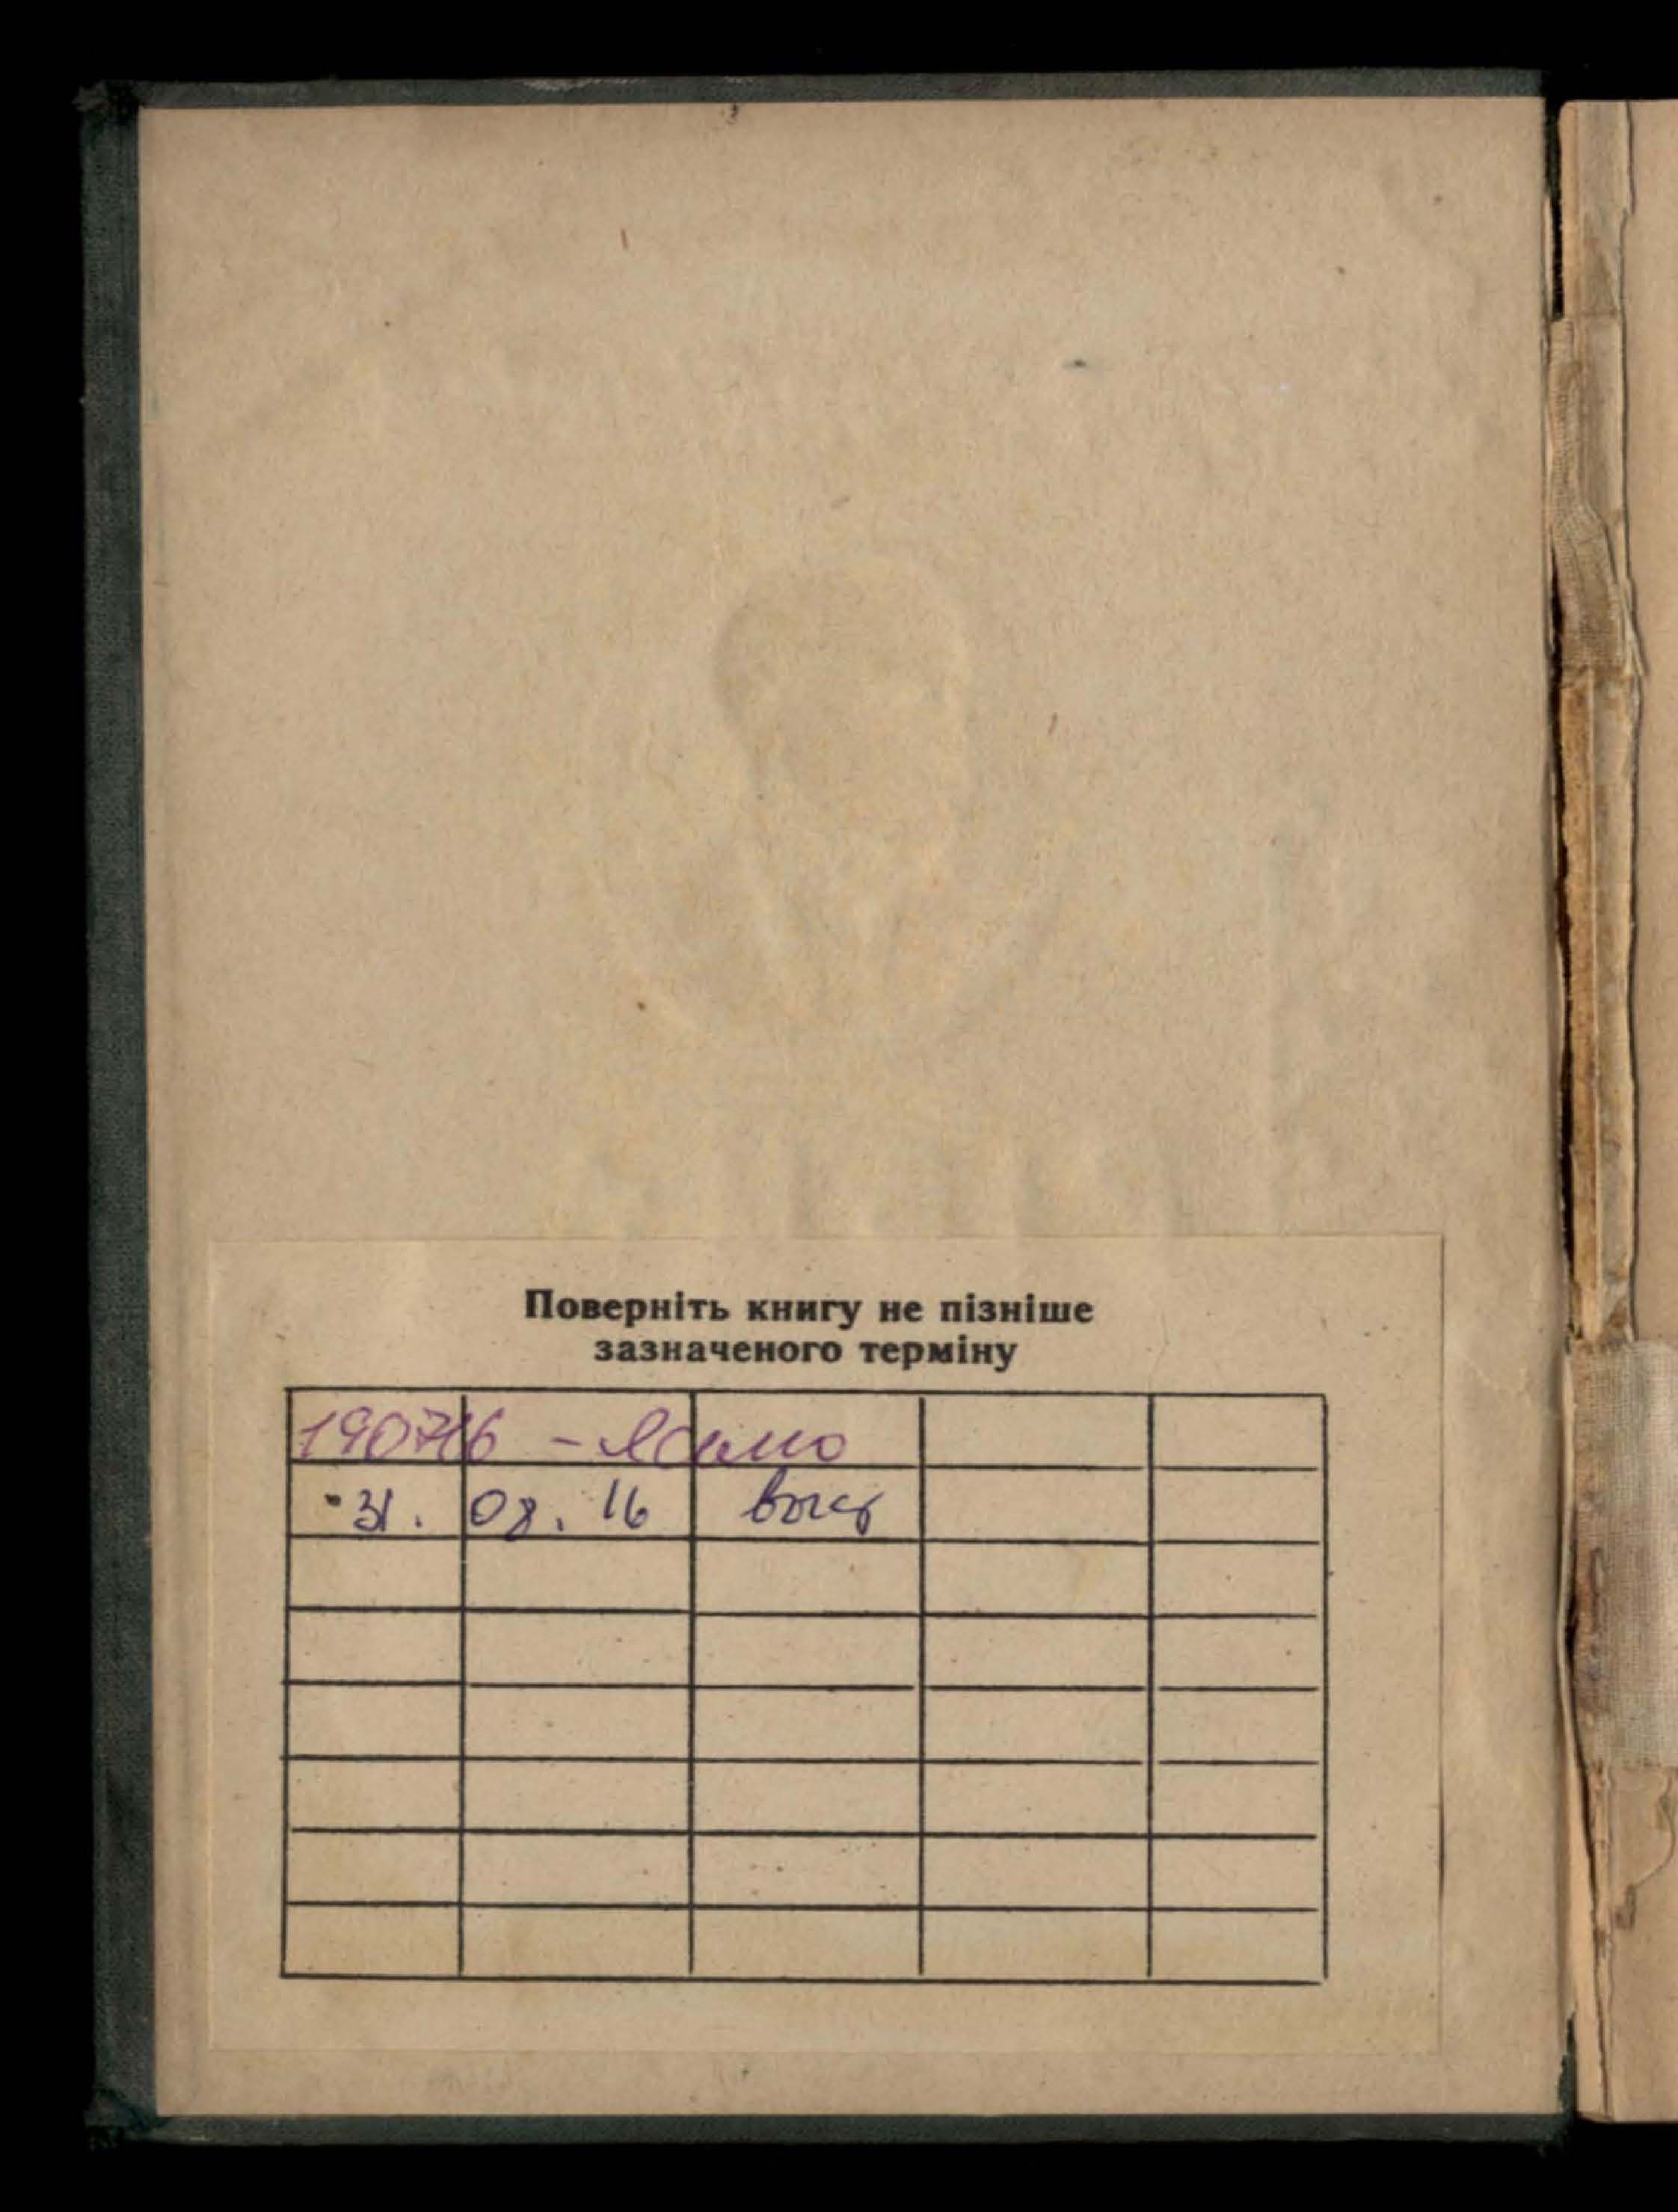 Поверніть книгу не пізніше
зазначеного терміну
190716 -
31. 08. 16